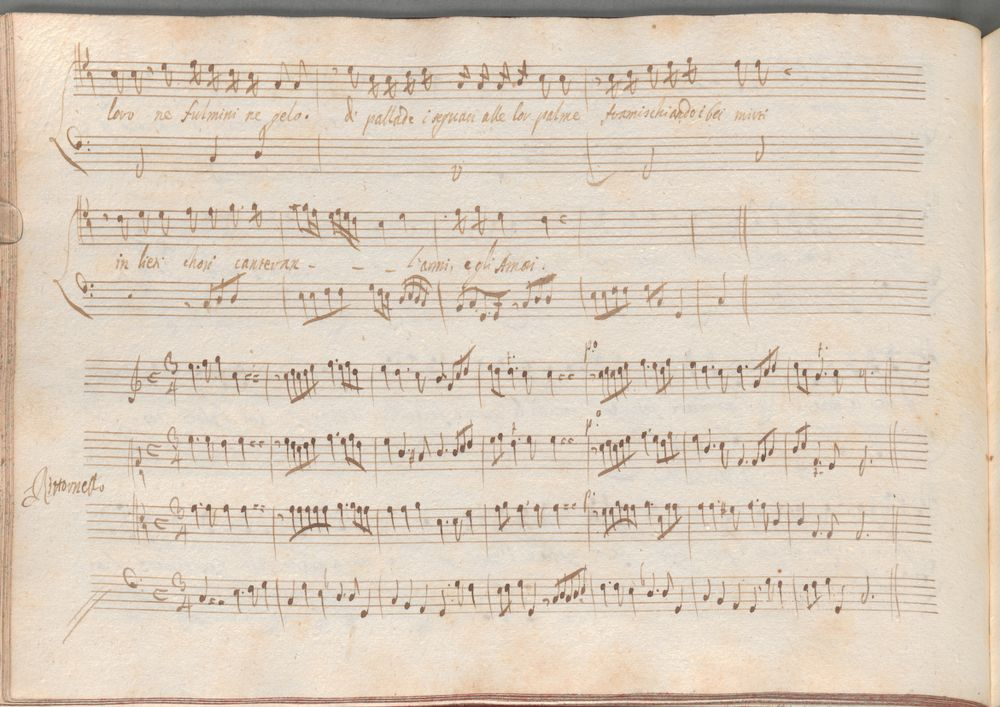 loro ne fulmini ne gelo. di pallade i seguaci alle lor palme framischiando i bei mirti
in lieti chori cantevan - - - l'armi, e gli Amori.
p.o
t.
t.
p.o
Ritornello